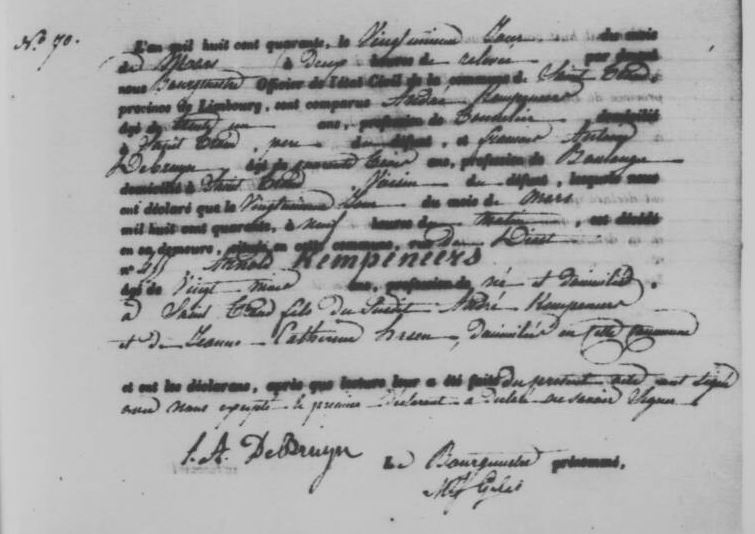 N.° 70.
L'an mil huit cent quarante, le Vingtunieme Jour du mois
de Mars à Deux heures de relevée par devant
nous Bourgmestre Officier de l'état Civil de la commune de Saint Trond,
province de Limbourg, sont comparus André Kempeneers
âgé de trente un ans, profession de domicilié
à Saint Trond, pere du défunt, et francois Antoine
DeBruyn âgé de quarante trois ans, profession de Boulanger
domicilié à Saint Trond Voisin du défunt, lesquels nous
ont déclaré que le Vingtunieme Jour du mois de Mars
mil huit cent quarante, à neuf heures du matin, est décédé
en sa demeure, située en cette commune, rue de Diest
n° Arnold Kempeneers
âgé de Vingt mois ans, profession de né et domicilié,
à Saint Trond fils du Susdit André Kempeneers
et de Jeanne Catherine domiciliée en cette commune
et ont les déclarans, après que lecture leur a été faite du présent acte ont signé
avec nous excepté le premier déclarant a declaré ne savoir Signer
f. A. DeBruyn Le Bourgmestre prénommé,